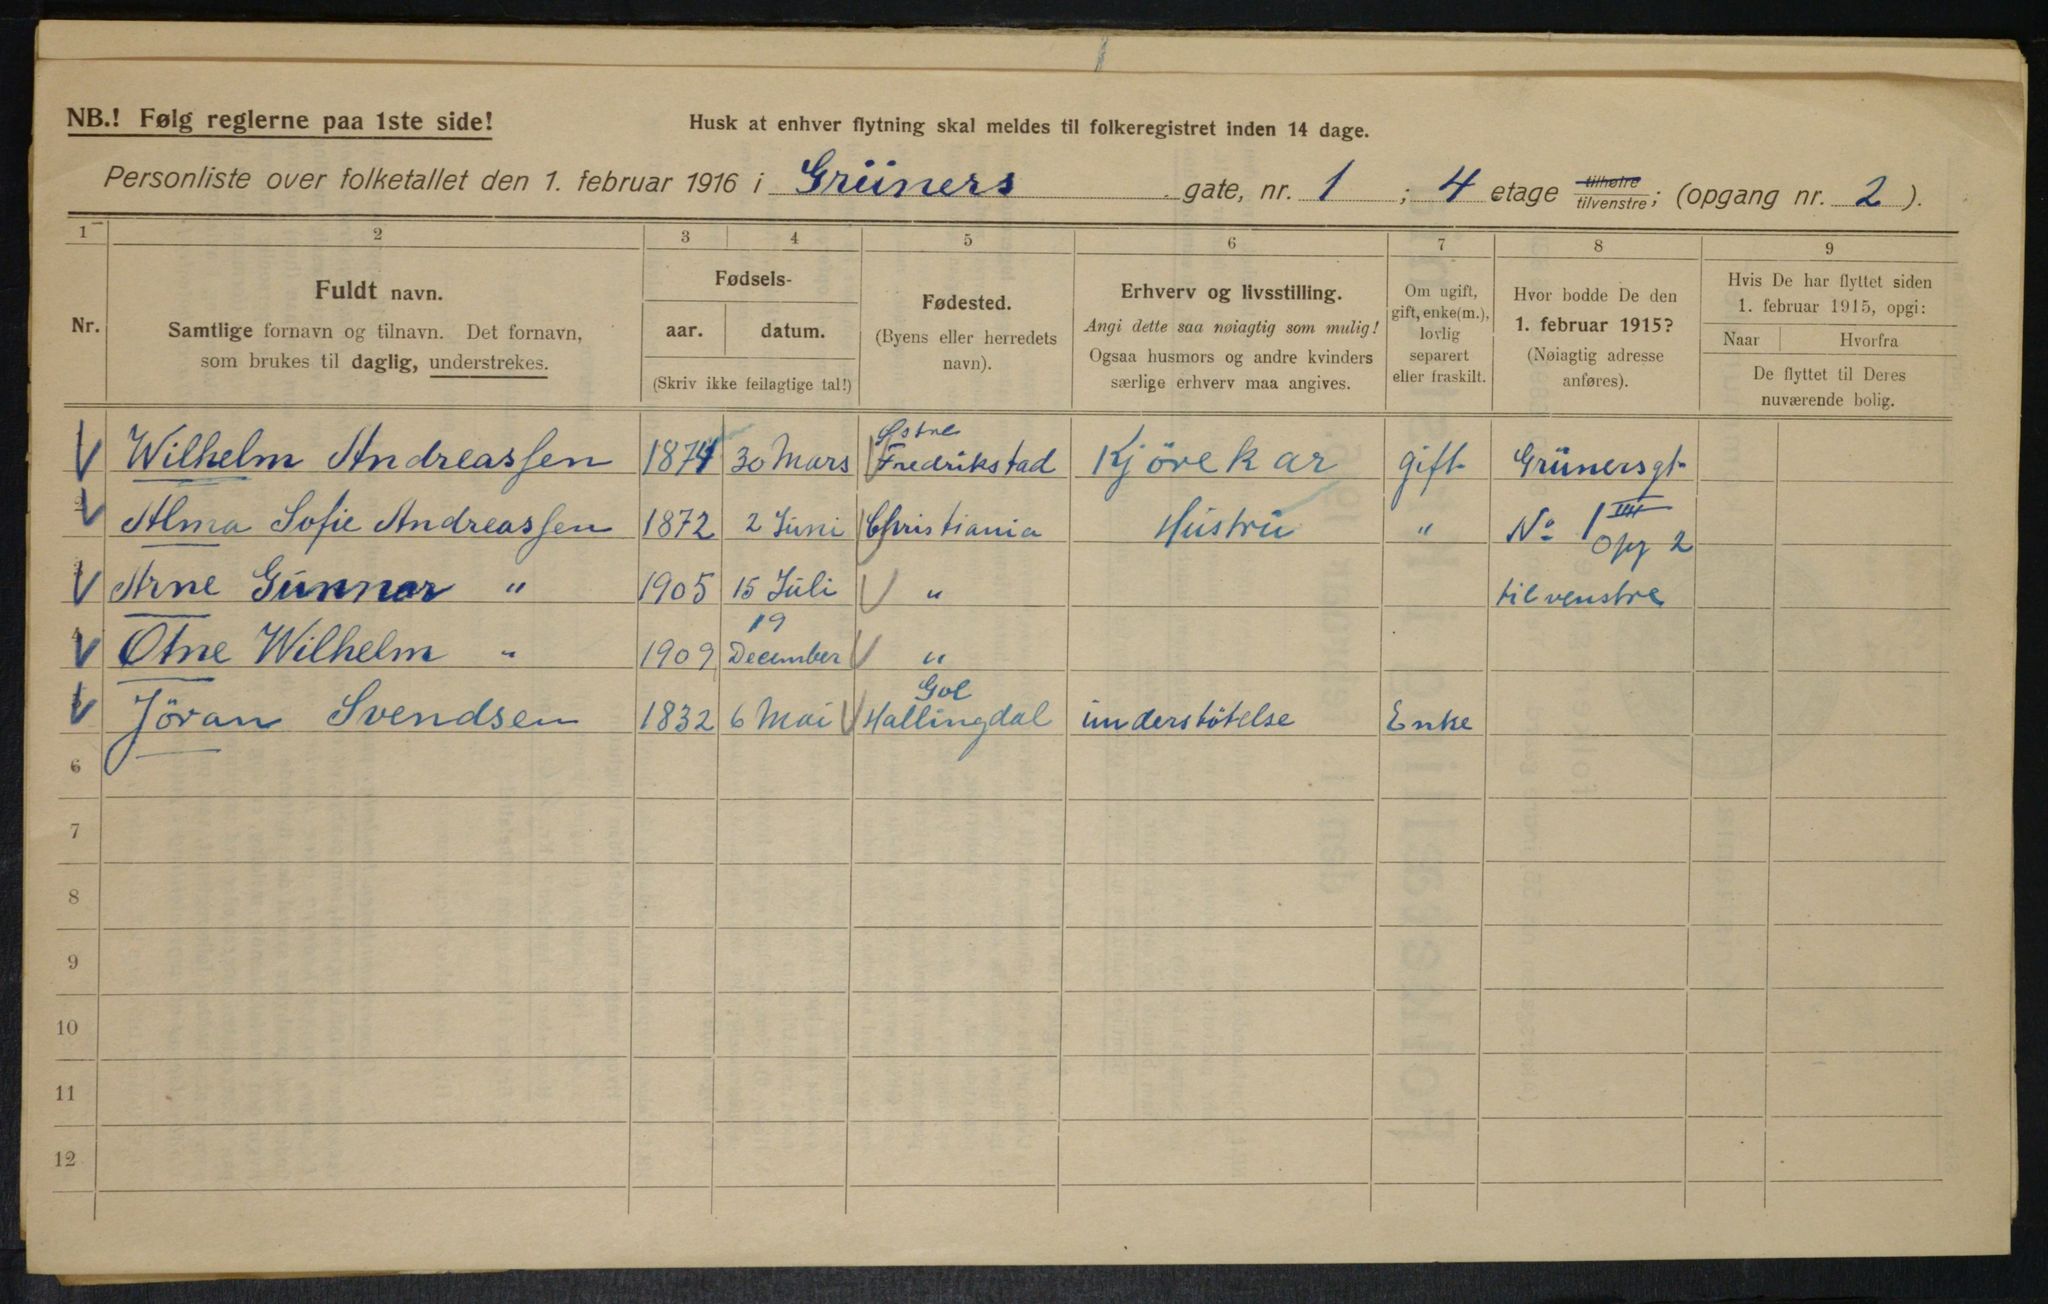 NB.! Følg reglerne paa 1ste side!
Husk at enhver flytning skal meldes til folkeregistret inden 14 dage.
Personliste over folketallet den 1. februar 1916 i Grüners gate, nr. 1 ; 4 etage tilhøire tilvenstre; (opgang nr. 2 ).
1 2 3 4 5 6 7 8 9
Nr.
Fuldt navn.
Samtlige fornavn og tilnavn. Det fornavn,
som brukes til daglig, understrekes.
Fødsels-
aar. datum.
(Skriv ikke feilagtige tal!)
Fødested.
(Byens eller herredets
navn).
Erhverv og livsstilling.
Angi dette saa nøiagtig som mulig!
Ogsaa husmors og andre kvinders
særlige erhverv maa angives.
Om ugift,
gift, enke(m.),
lovlig
separert
eller fraskilt.
Hvor bodde De den
1. februar 1915?
(Nøiagtig adresse
anføres).
Hvis De har flyttet siden
1. februar 1915, opgi:
Naar Hvorfra
De flyttet til Deres
nuværende bolig.
Wilhelm Andreassen 1874 30 Mars Østre Fredrikstad Kjörekar gift Grünersgt
2 Alma Sofie Andreassen 1872 2 Juni Christiania Hustru " No 1 IIII Opg 2
3 Arne Gunnar " 1905 15 Juli " tilvenstre
4 Wilhelm " 1909 19 December "
5 Jöran Svendsen 1832 6 Mai Gol Hallingdal understötelse Enke
6
7
8
9
10
11
12